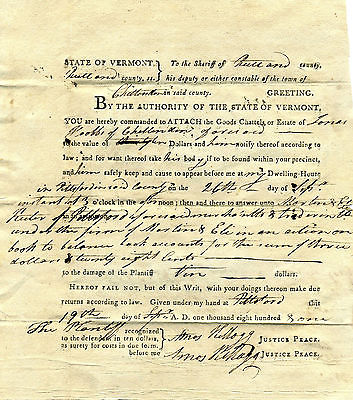 STATE OF VERMONT, To the Sheriff of Rutland county,
Rutland county, ss. his deputy or either constable of the town of
Chittenden in said county. GREETING.
BY THE AUTHORITY OF THE STATE OF VERMONT,
YOU are hereby commanded to ATTACH the Goods Chattels or Estate of Jonas
of Chittenden aforesaid
to the value of Dollars and him notify thereof according to
law; and for want thereof take his body if to be found within your precinct,
and him safely keep and cause to appear before me at my Dwelling-House
in Pittsford in said County on the 26th day of Sept
instant at 3 o'clock in the noon; then and there to answer unto
of Pittsford aforesaid merchants &
under the firm of in an action on
book to balance book accounts for the sum of three
dollars & twenty eight cents
to the damage of the Plaintiff ten dollars.
HEREOF FAIL NOT, but of this Writ, with your doings thereon make due
returns according to law. Given under my hand at Pittsford this
19th day of Sept A. D. one thousand eight hundred & one
The Plantiff recognized Amos Kellogg JUSTICE PEACE.
to the defendant in ten dollars,
as surety for costs in due form.
before me Amos Kellogg JUSTICE PEACE.